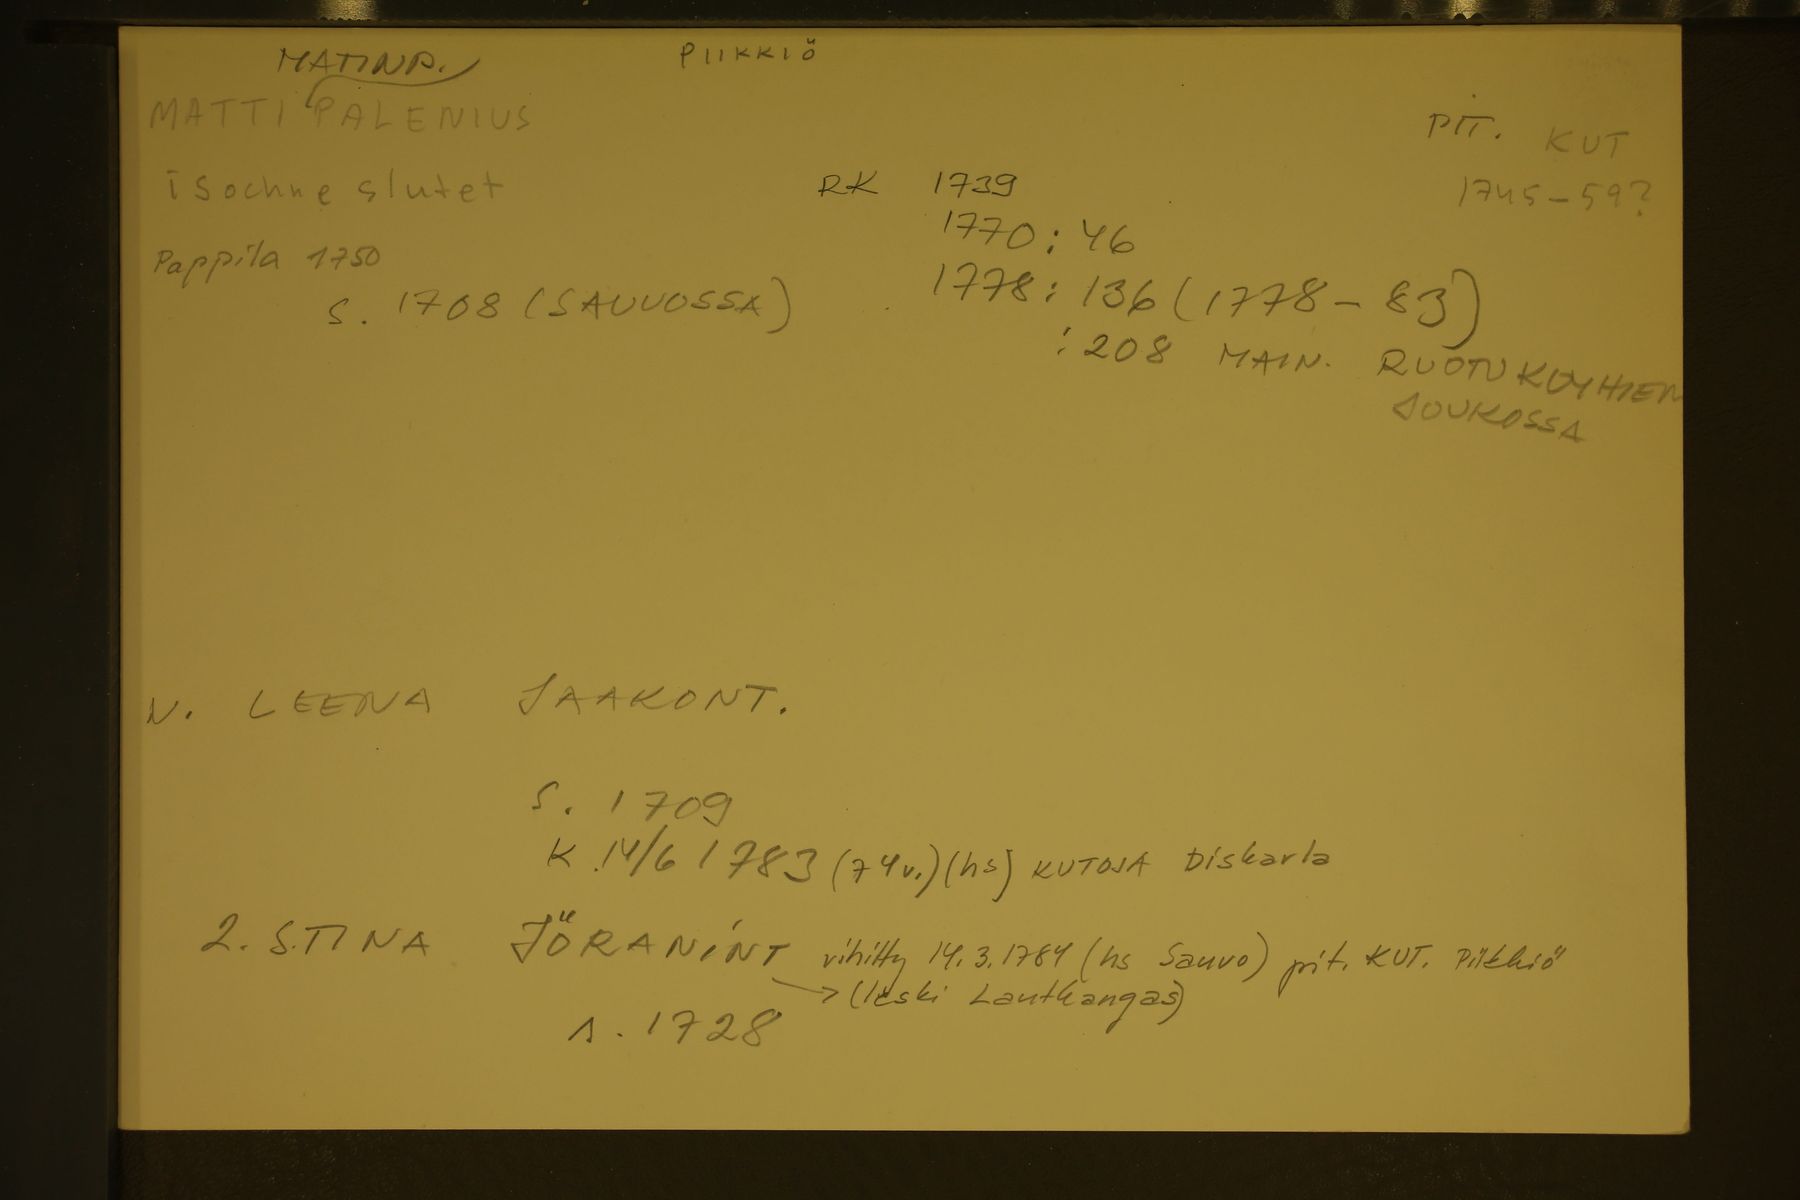 MATINP. PIIKKIÖ
MATTI PALENIUS
PIT. KUT
i sochne slutet RK 1739 1745-59?
1770: 46
Pappila 1750
s. 1708 (SAUVOSSA) 1778: 136 (1778-83)
: 208 MAIN. RUOTUKÖYHIEN
JOUKOSSA
V. LEENA JAAKONT.
s. 1709
K 14/6 1783 (74v.) (hs) KUTOJA Diskarla
2. STINA JÖRANINT vihitty 14.3.1784 (hs Sauvo) pit. KUT. Piikkiö
→ (leski Lautkangas)
s. 1728